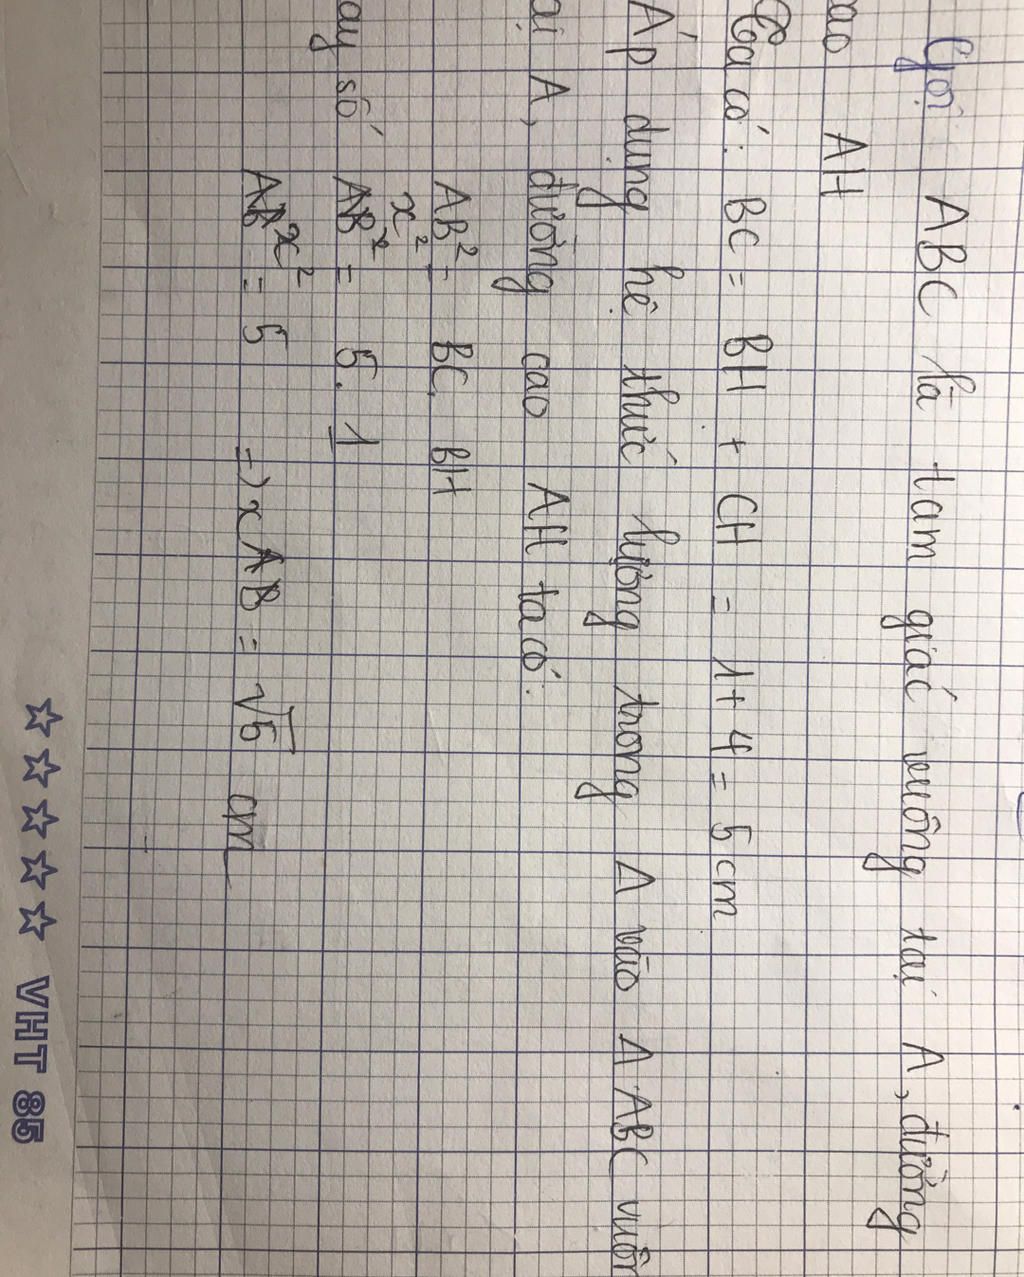 Gọi ABC là tam giác vuông tại A, đường
cao AH
Ta có: BC = BH + CH = 1 + 4 = 5 cm
Áp dụng hệ thức lượng trong Δ vào Δ ABC vuôn
ại A, đường cao AH ta có:
AB² = BC. BH
ay số x² = 5.1
x² = 5 => x = √5 cm
☆☆☆☆☆ VHT 85